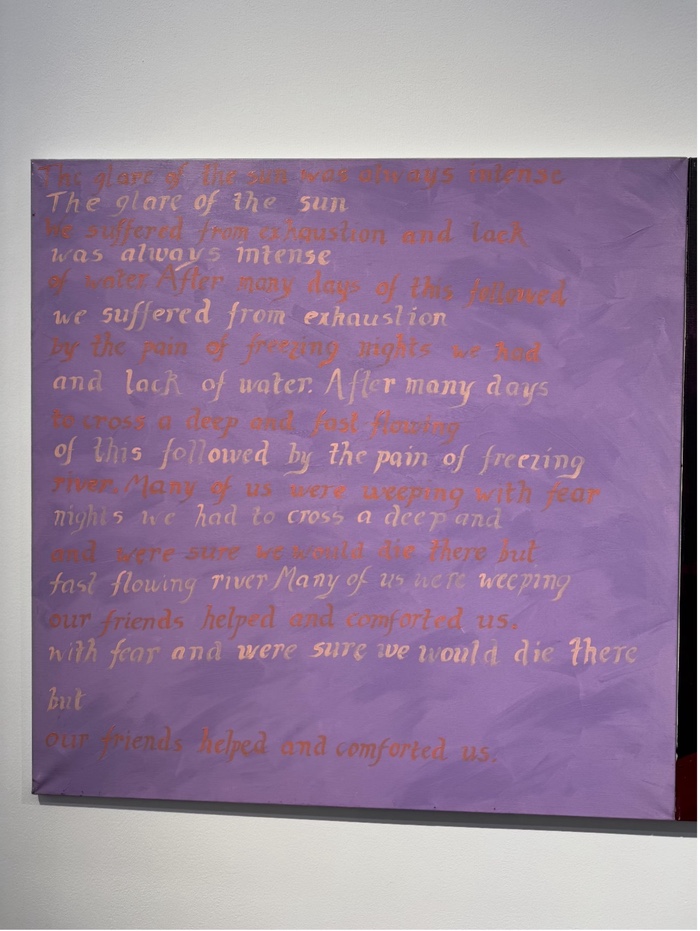 The glare of the sun was always intense
The glare of the sun
We suffered from exhaustion and lack
was always intense
of water After many days of this followed
we suffered from exhaustion
by the pain of freezing nights we had
and lack of water. After many days
to cross a deep and fast flowing
of this followed by the pain of freezing
river. Many of us were weeping with fear
nights we had to cross a deep and
and were sure we would die there but
fast flowing river Many of us were weeping
our friends helped and comforted us.
with fear and were sure we would die there
but
our friends helped and comforted us.